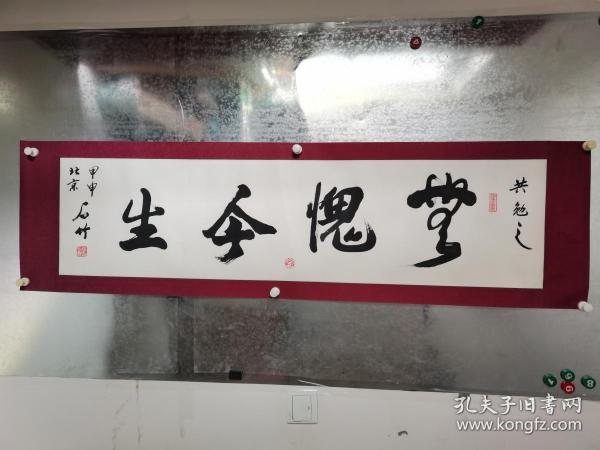 共勉之
無愧今生
甲申
北京 石竹
孔夫子旧书网
www.kongfz.com